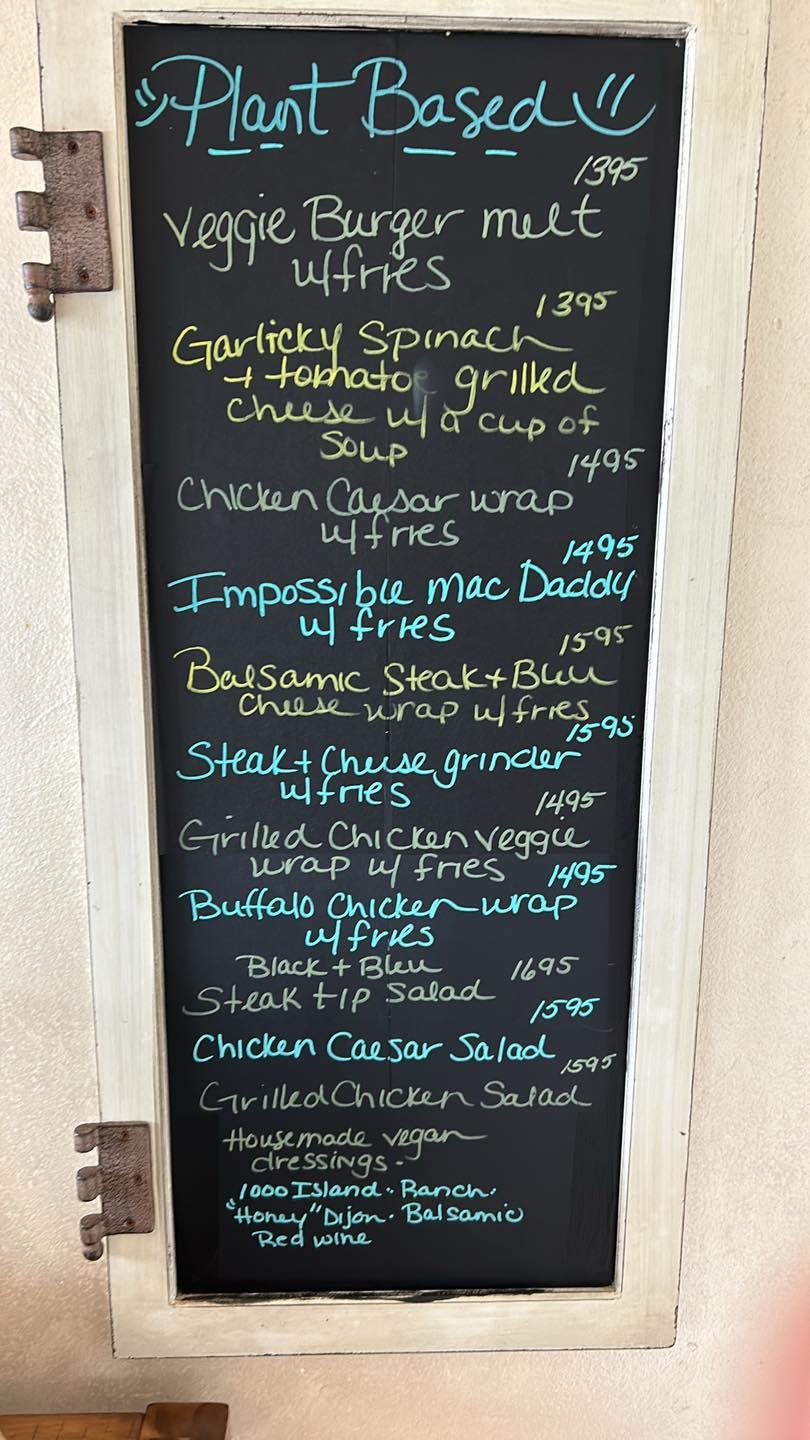 Plant Based
1395
Veggie Burger melt
w/fries
1395
Garlicky Spinach
+ tomatoe grilled
cheese w/ a cup of
Soup
1495
Chicken Caesar wrap
w/fries
1495
Impossible Mac Daddy
w/ fries
1595
Balsamic Steak + Bleu
Cheese wrap w/fries
1595
Steak + Cheese grinder
w/fries
1495
Grilled Chicken veggie
wrap w/ fries
1495
Buffalo Chicken wrap
w/fries
Black + Bleu 1695
Steak tip Salad
1595
Chicken Caesar Salad
1595
Grilled Chicken Salad
Housemade vegan
dressings.
1000 Island · Ranch ·
"Honey" Dijon · Balsamic
Red wine